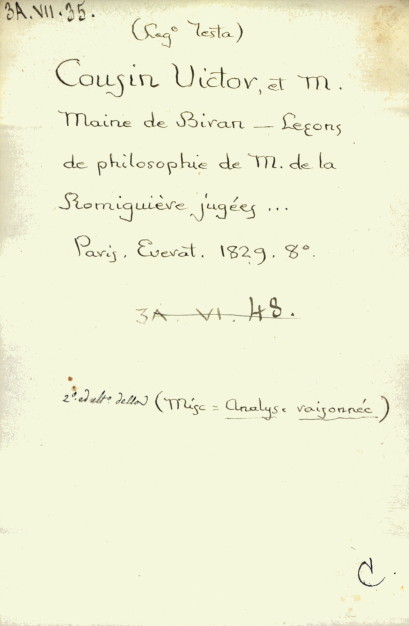 3A.VII.35.
(Leg° Testa)
Cousin Victor, et M.
Maine de Biran — Leçons
de philosophie de M. de la
Romiguière jugées ...
Paris. Everat. 1829. 8°.
3A. VI. 48.
2° ed alt° (Misc = Analyse raisonnée)
C.